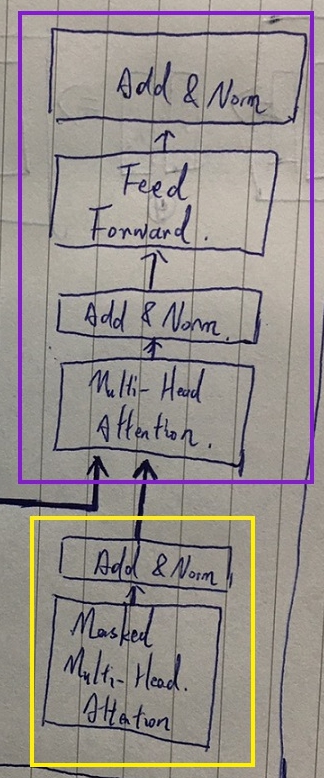 Add & Norm
Feed
Forward.
Add & Norm.
Multi-Head
Attention.
Add & Norm
Masked
Multi-Head.
Attention